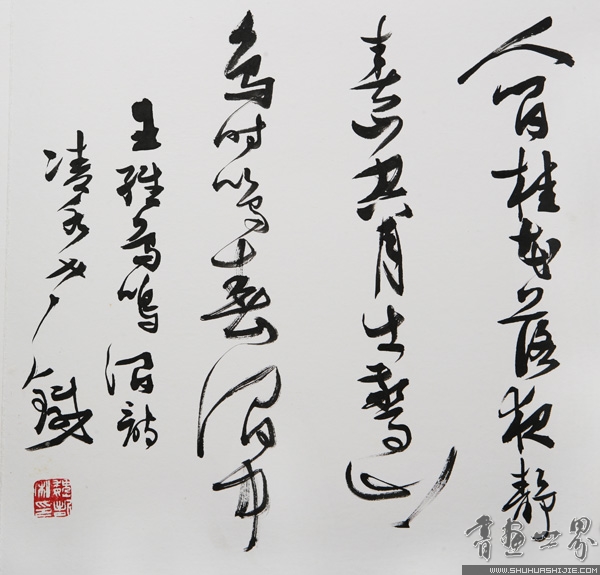 人闲桂花落夜静
春山空月出惊山
鸟时鸣春涧中
王维鸟鸣涧诗
書畫世界
WWW.SHUHUASHIJIE.COM